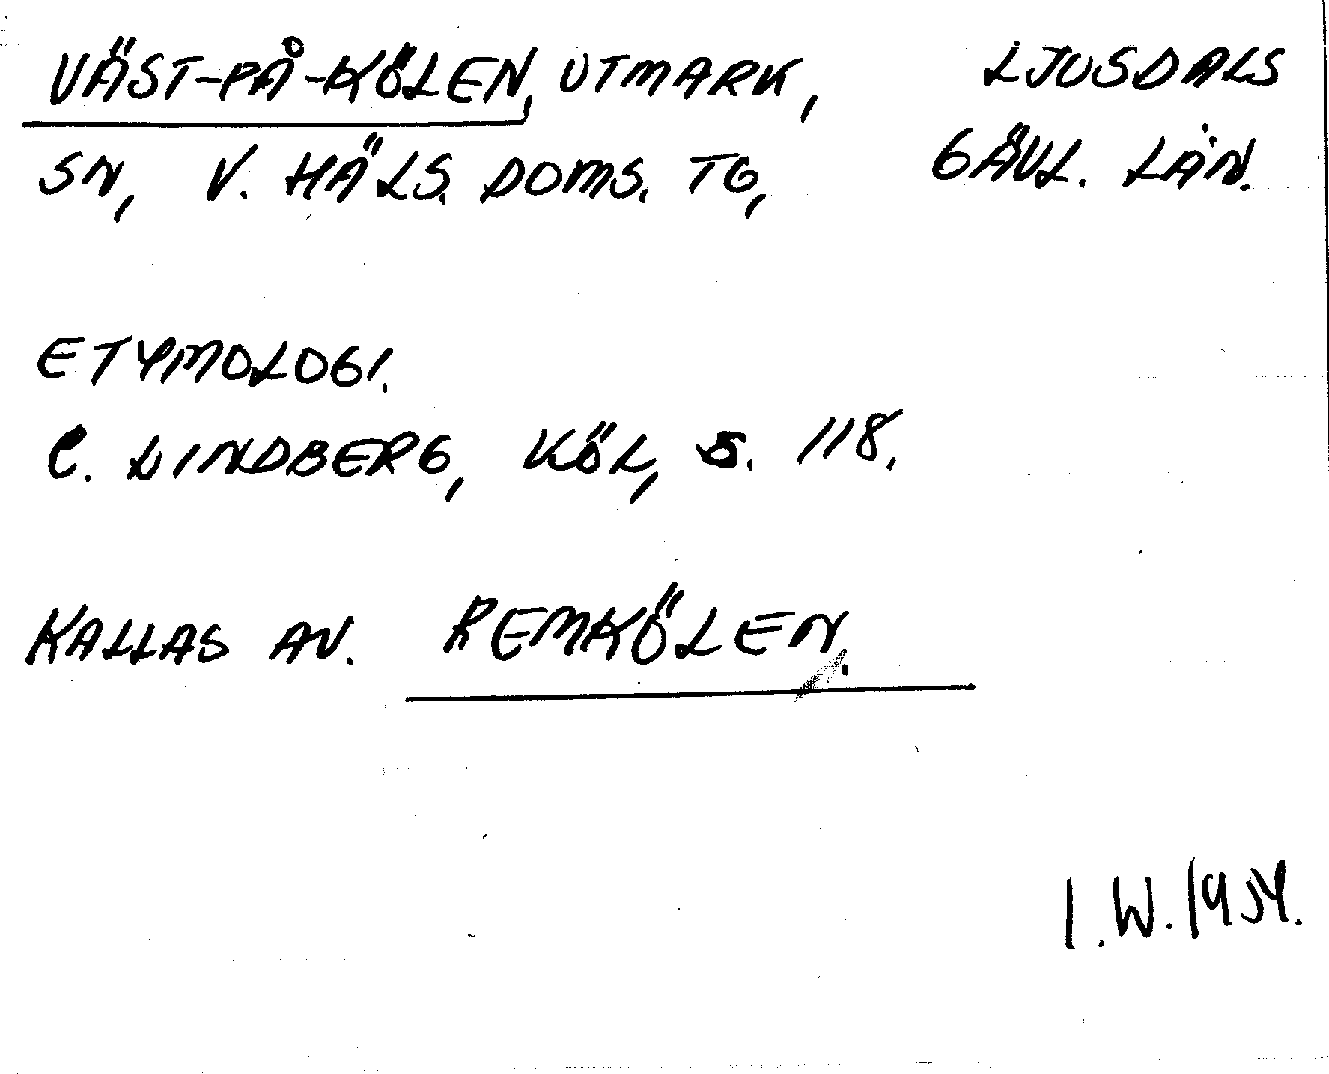 VÄST-PÅ-KÖLEN, UTMARK, LJUSDALS
SN, V. HÄLS. DOMS. TG, GÄVL. LÄN.
ETYMOLOGI.
C. LINDBERG, KÖL, S. 118.
KALLAS AV. REMKÖLEN.
I.W. 1954.